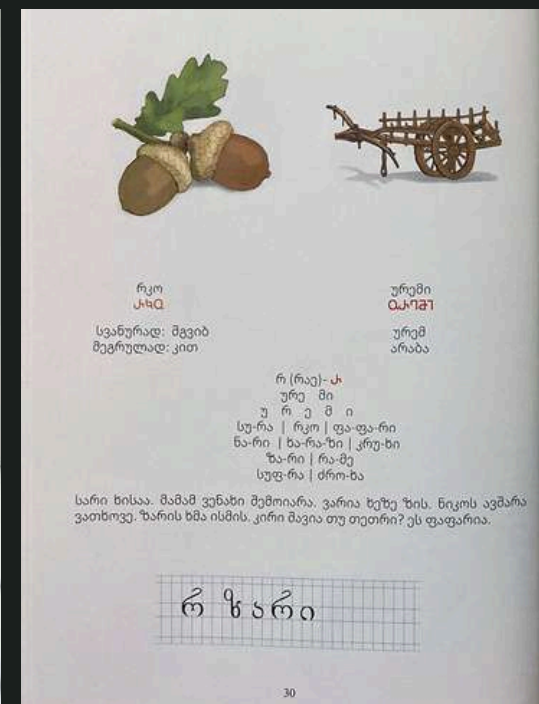 რკო
ⴐⴉⴍ
სვანურად: მგვიბ
მეგრულად: კით
ურემი
ⴍⴣⴐⴄⴋⴈ
ურემ
არაბა
რ (რაე)- ⴐ
ურე მი
უ რ ე მ ი
სუ-რა | რკო | ფა-ფა-რი
ნა-რი | ხა-რა-ზი | კრუ-ხი
ზა-რი | რა-მე
სუფ-რა | ძრო-ხა
სარი ხისაა. მამამ ვენახი შემოიარა. ვარია ხეზე ზის. ნიკოს ავშარა
ვათხოვე. ზარის ხმა ისმის. კირი შავია თუ თეთრი? ეს ფაფარია.
რ ზარი
30